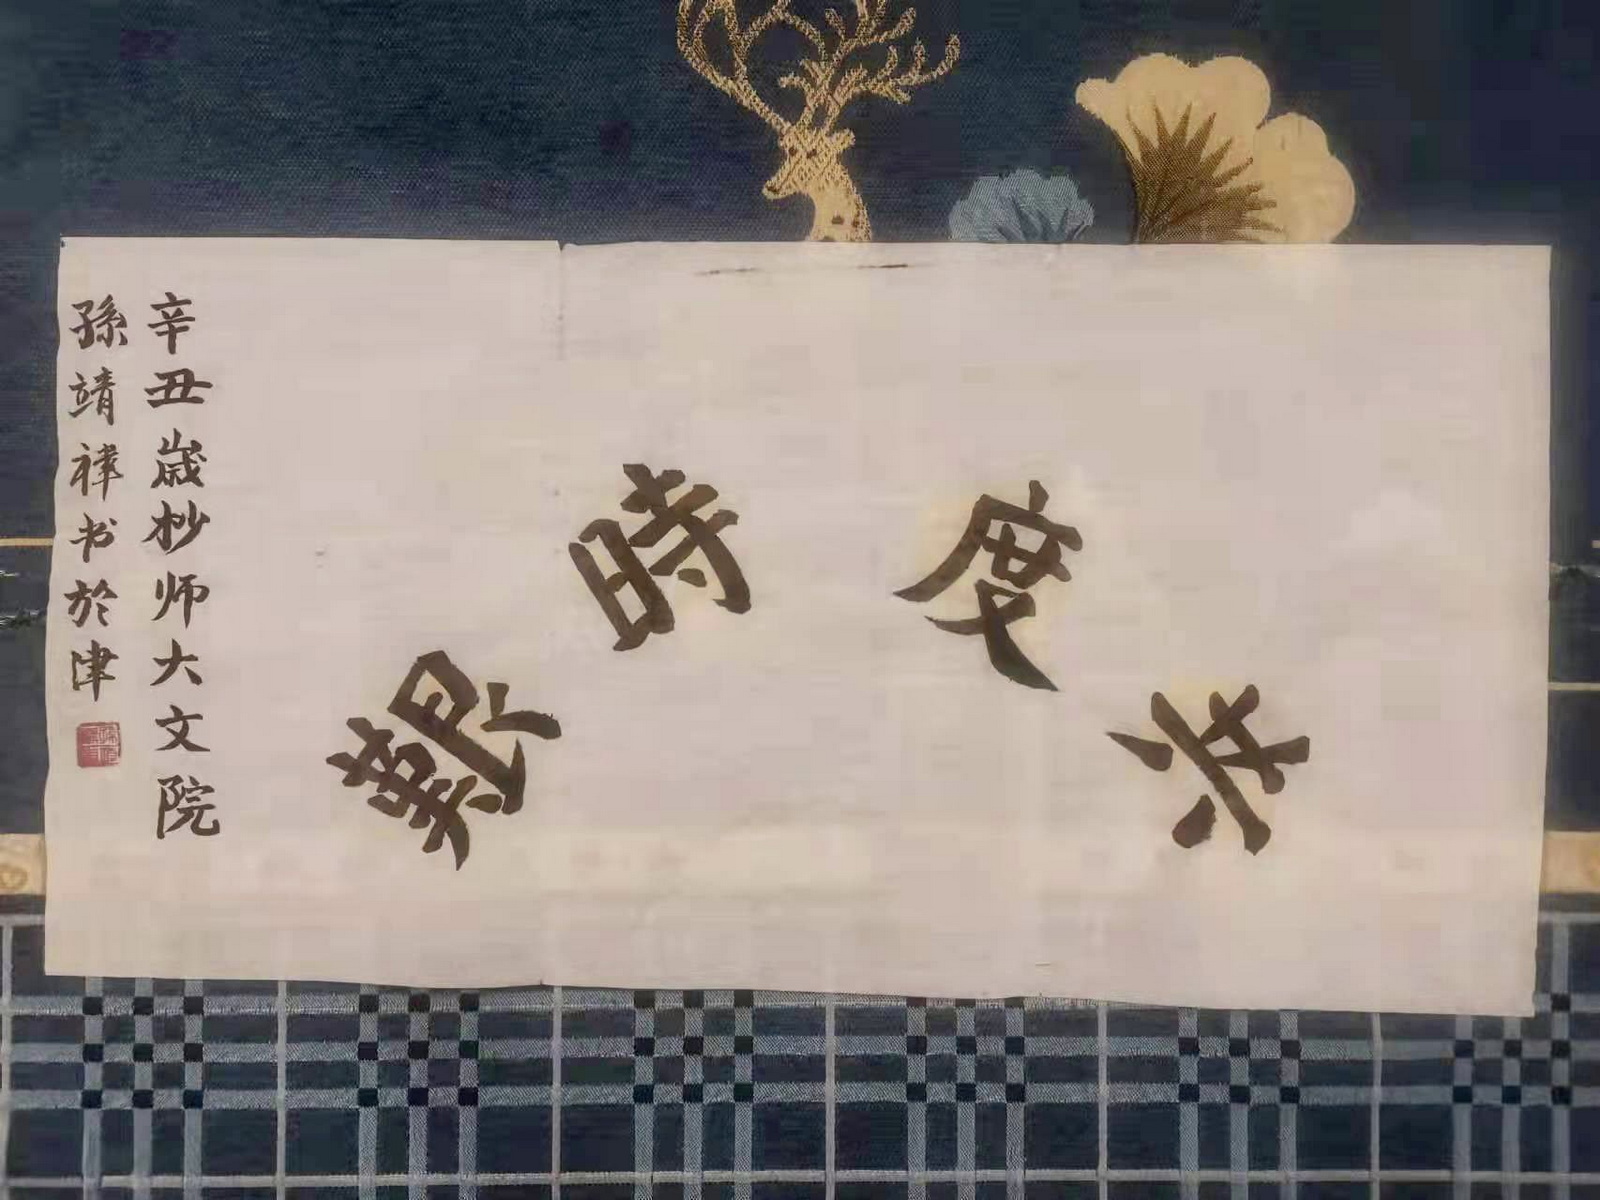 共度時艱
辛丑歲杪师大文院
孫靖禕书於津